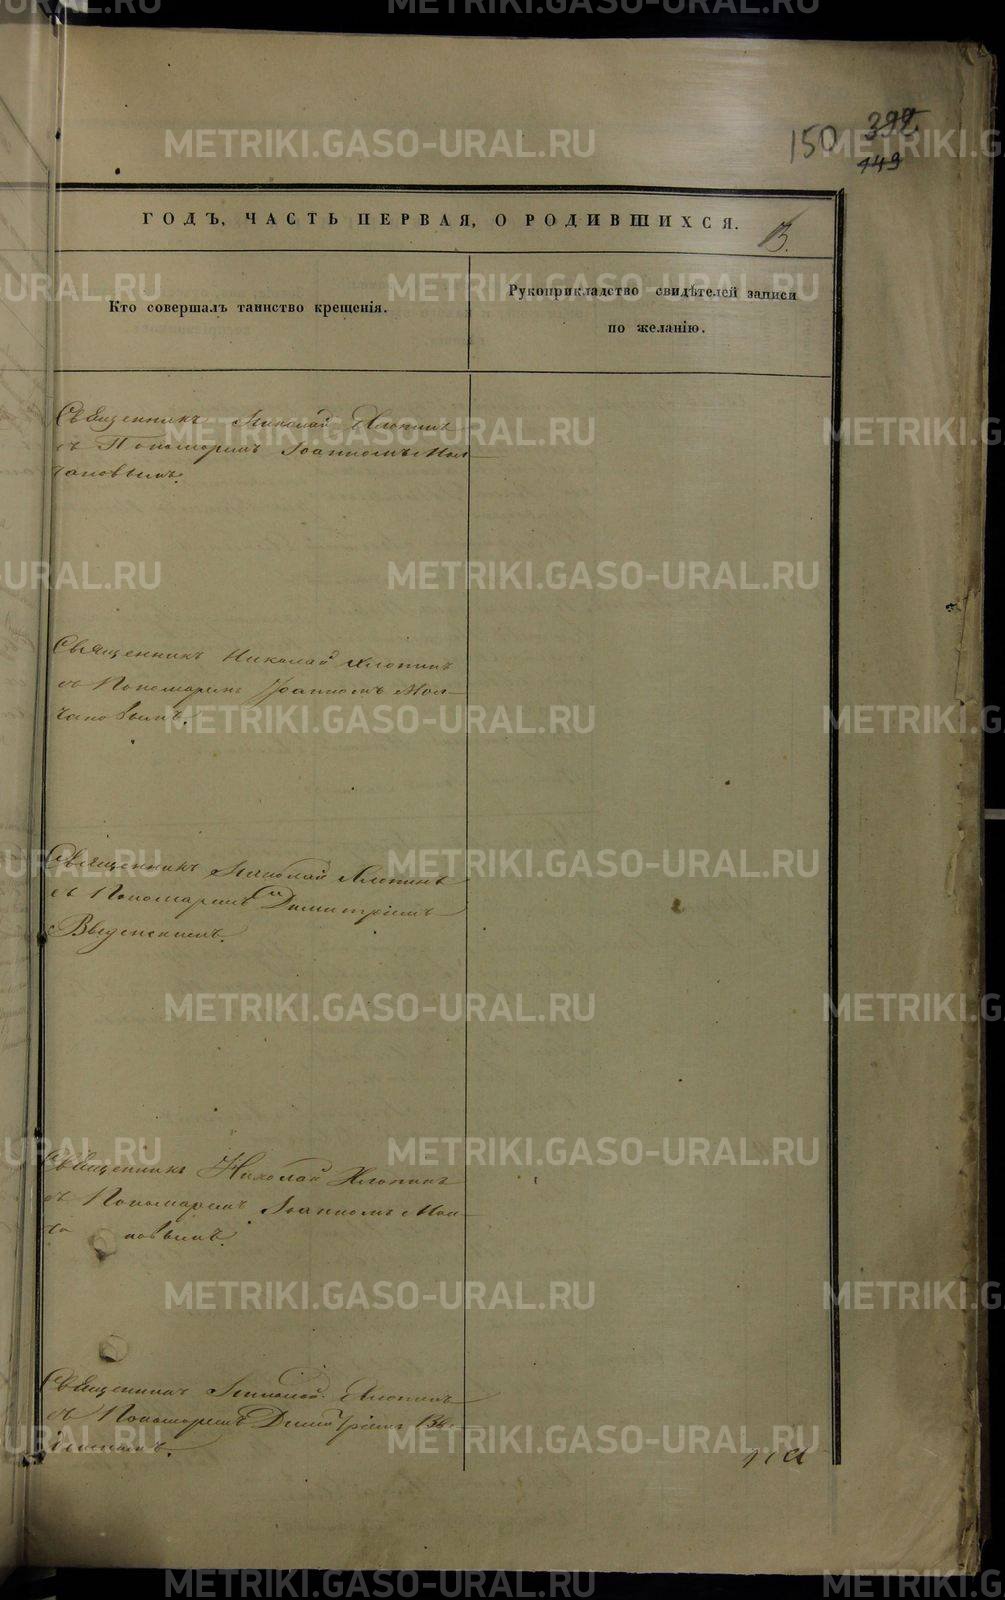 METRIKI.GASO-URAL.RU
150
392
149
ГОДЪ, ЧАСТЬ ПЕРВАЯ, О РОДИВШИХСЯ.
13.
Кто совершалъ таинство крещенія.
Рукоприкладство свидѣтелей записи
по желанію.
Священникъ Николай Хлопинъ
съ Пономаремъ Іоанномъ Мол
чановымъ.
Священникъ Николай Хлопинъ
съ Пономаремъ Іоанномъ Мол-
чановымъ.
Священникъ Николай Хлопинъ
съ Пономаремъ Димитріемъ
Введенскимъ.
Священникъ Николай Хлопинъ
съ Пономаремъ Іоанномъ Мол-
ча новымъ.
Священникъ Николай Хлопинъ
съ Пономаремъ Димитріемъ